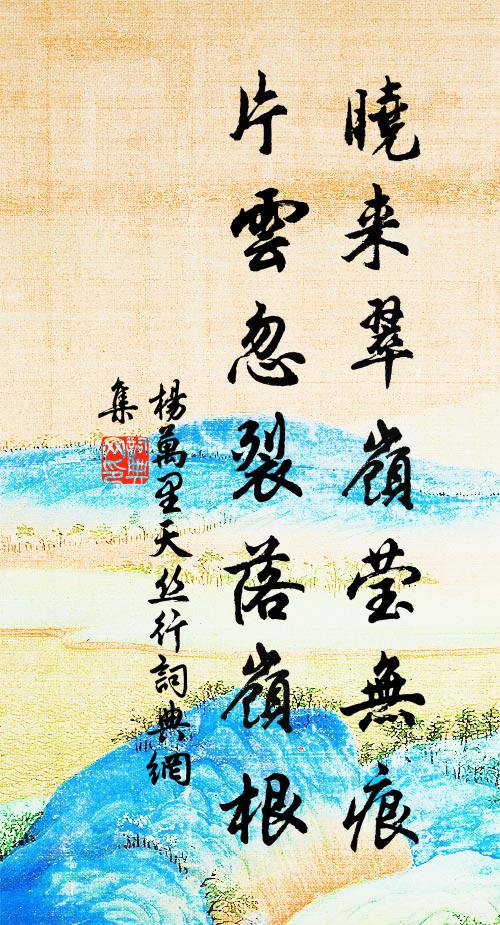 曉来翠嶺瑩無痕
片雲忽裂落嶺根
楊萬里天丝行詞典網
集